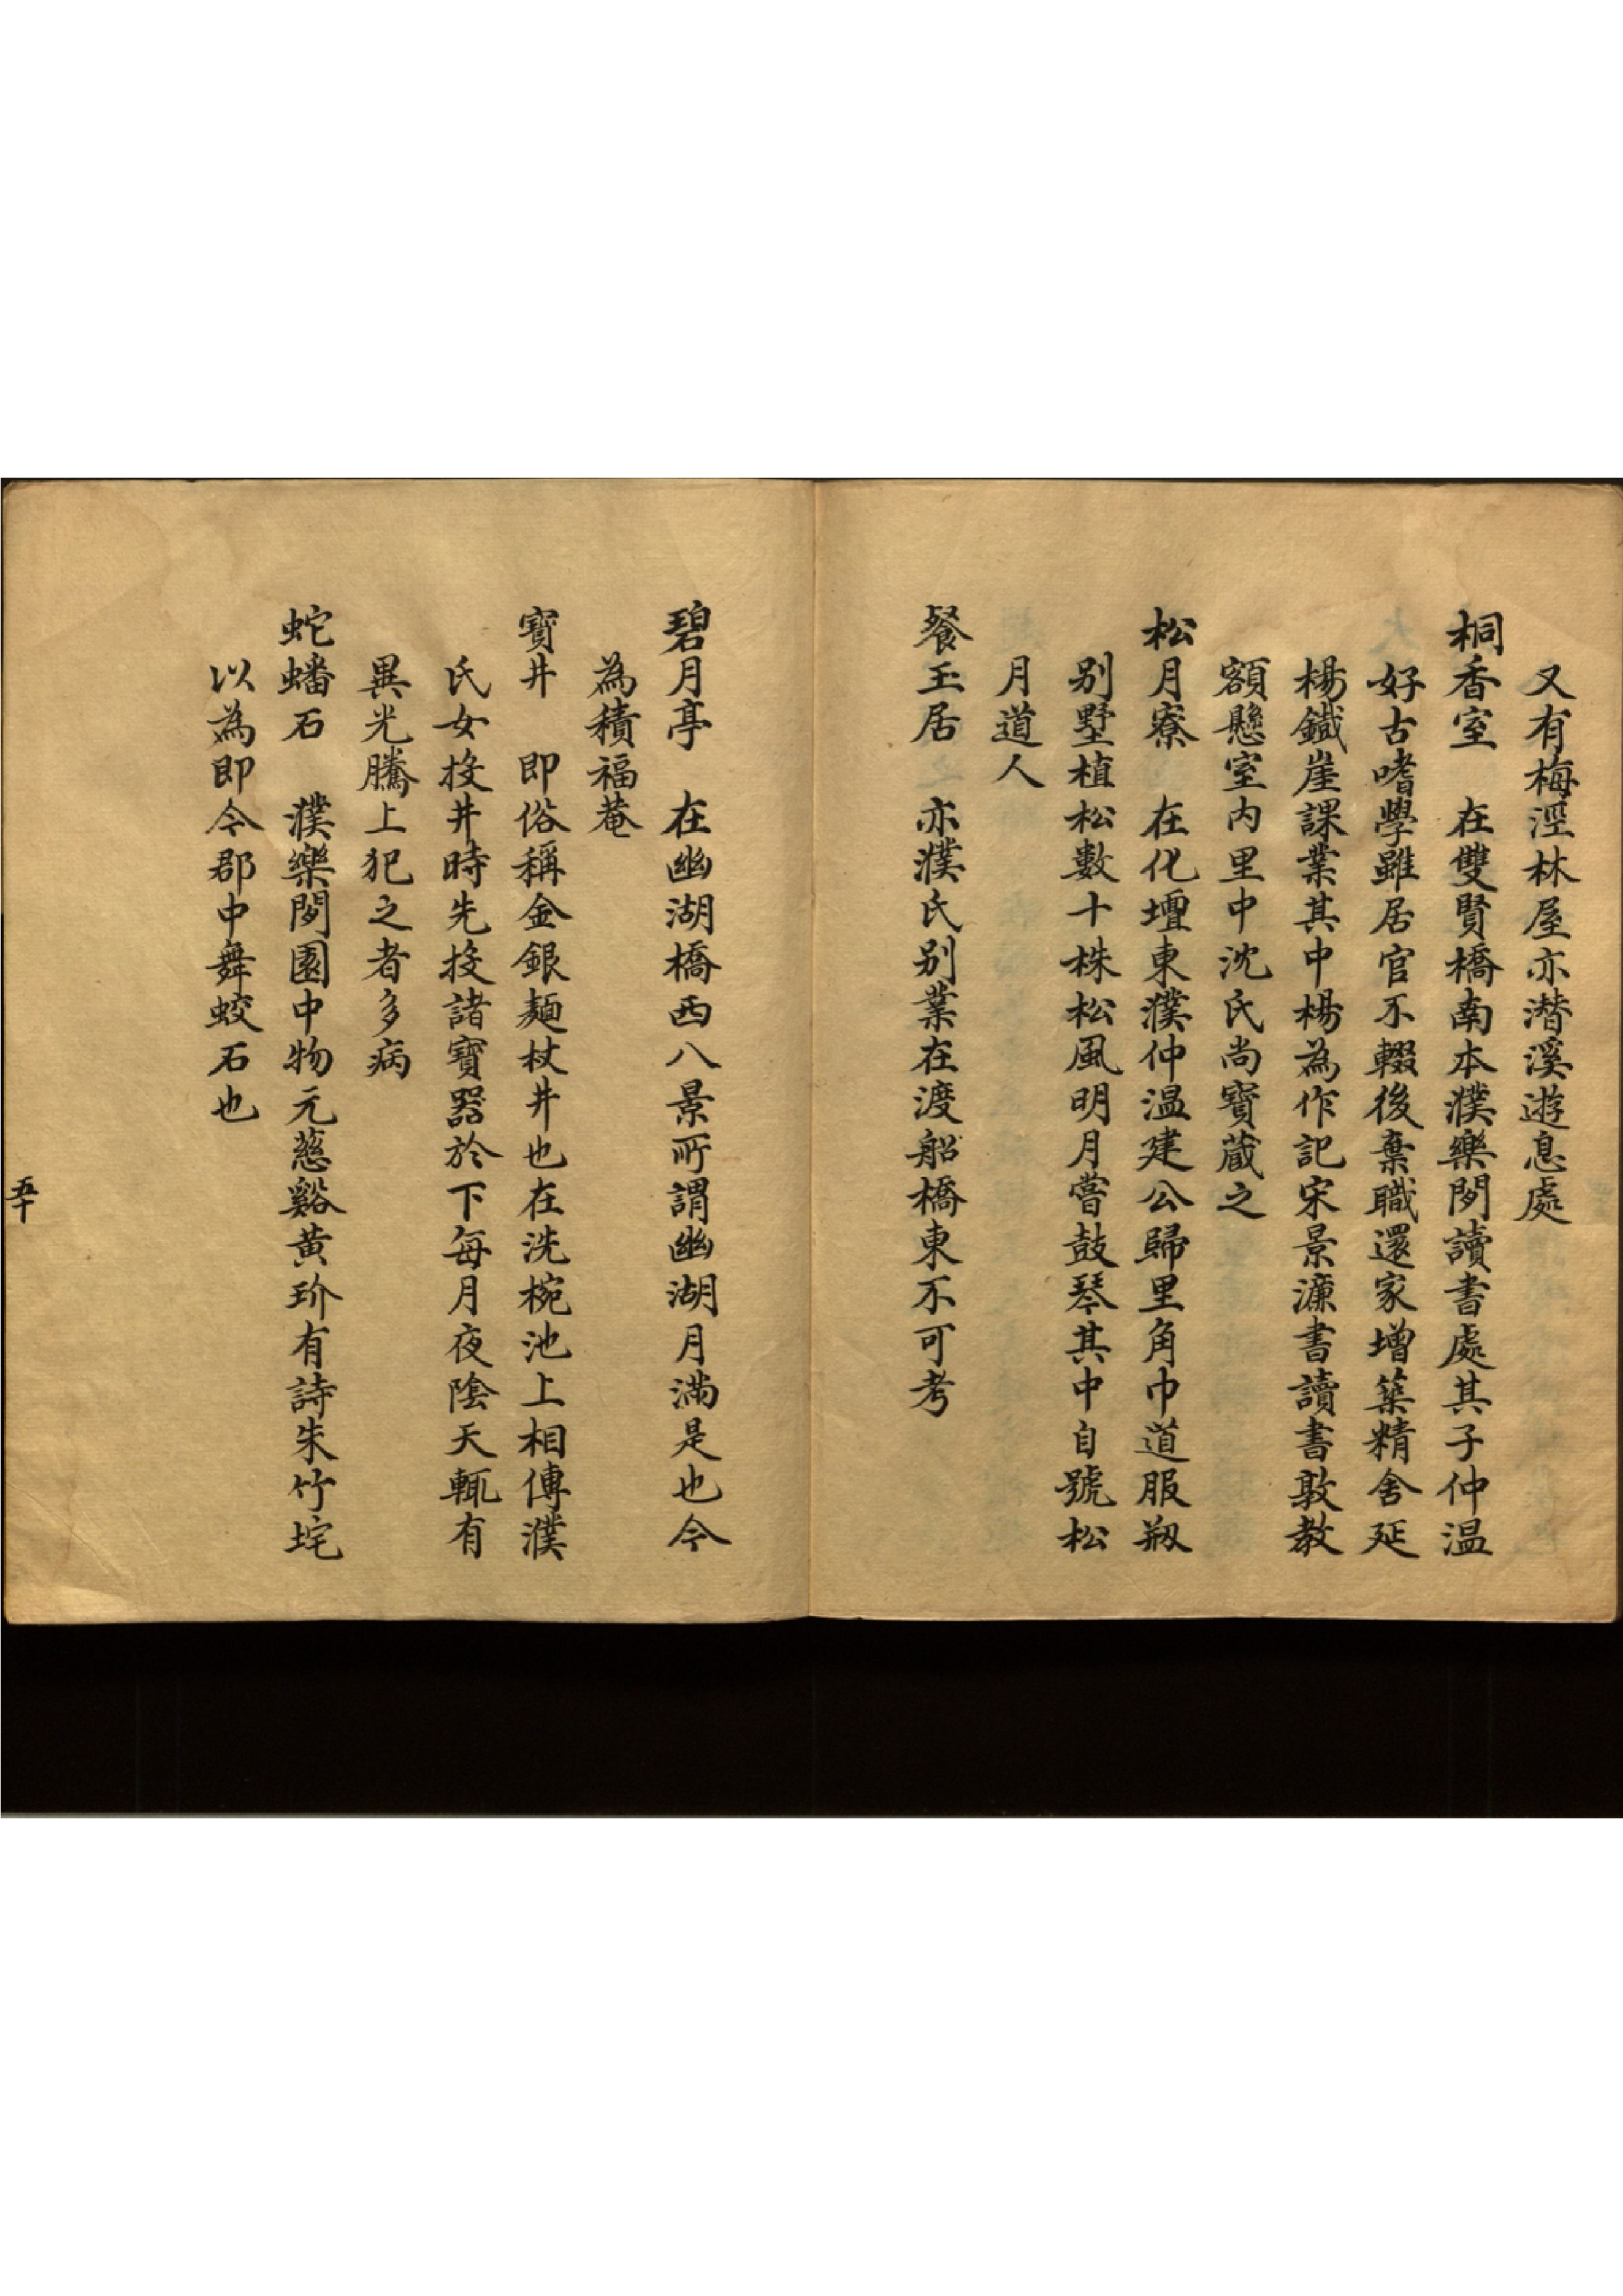 又有梅涇林屋亦潛溪遊息處
桐香室　在雙賢橋南本濮樂閒讀書處其子仲温
好古嗜學雖居官不輟後棄職還家增築精舍延
楊鐵崖課業其中楊為作記宋景濂書讀書敦教
額懸室内里中沈氏尚寶蔵之
松月寮　在化壇東濮仲温建公歸里角巾道服剏
别墅植松數十株松風明月嘗鼓琴其中自號松
月道人
餐玉居　亦濮氏别業在渡船橋東不可考
碧月亭　在幽湖橋西八景所謂幽湖月滿是也今
為積福菴
寶井　即俗稱金銀麺杖井也在洗椀池上相傳濮
氏女投井時先投諸寶器於下每月夜陰天輒有
異光騰上犯之者多病
蛇蟠石　濮樂閒園中物元慈谿黄玠有詩朱竹垞
以為即今郡中舞蛟石也
五十